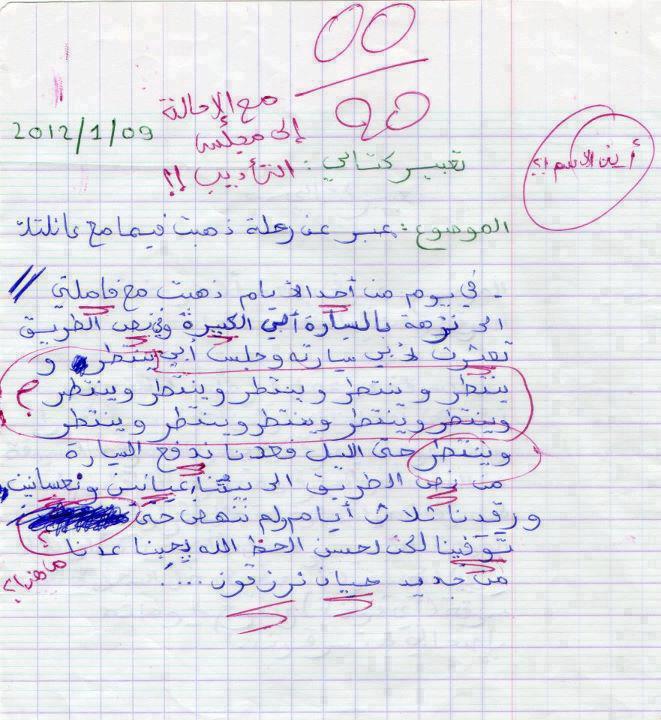 00
20
مع الإحالة
إلى مجلس
التأديب !!
2012/1/09
تعبير كتابي :
أين الاسم !؟
الموضوع : عبر عن رحلة ذهبت فيها مع عائلتك
- في يوم من أحد الأيام ذهبت مع فاملتي
الى نزهة بالسيارة أبي الكبيرة وفي نص الطريق
تعثرت لأبي سيارته وجلس أبي ينتظر و
ينتظر و ينتظر و ينتظر و ينتظر وينتظر ؟
وينتظر وينتظر وينتظر وينتظر و ينتظر
وينتظر حتى اليل فعدنا ندفع السيارة
من نص الطريق الى بيتنا عيانين ونعسانين
و رقدنا ثلاث أيام ولم ننهض حتى ؟
توفينا لكن لحسن الحظ الله يحبنا عدنا
من جديد حيان نرزقون ....
ما هذا ؟!